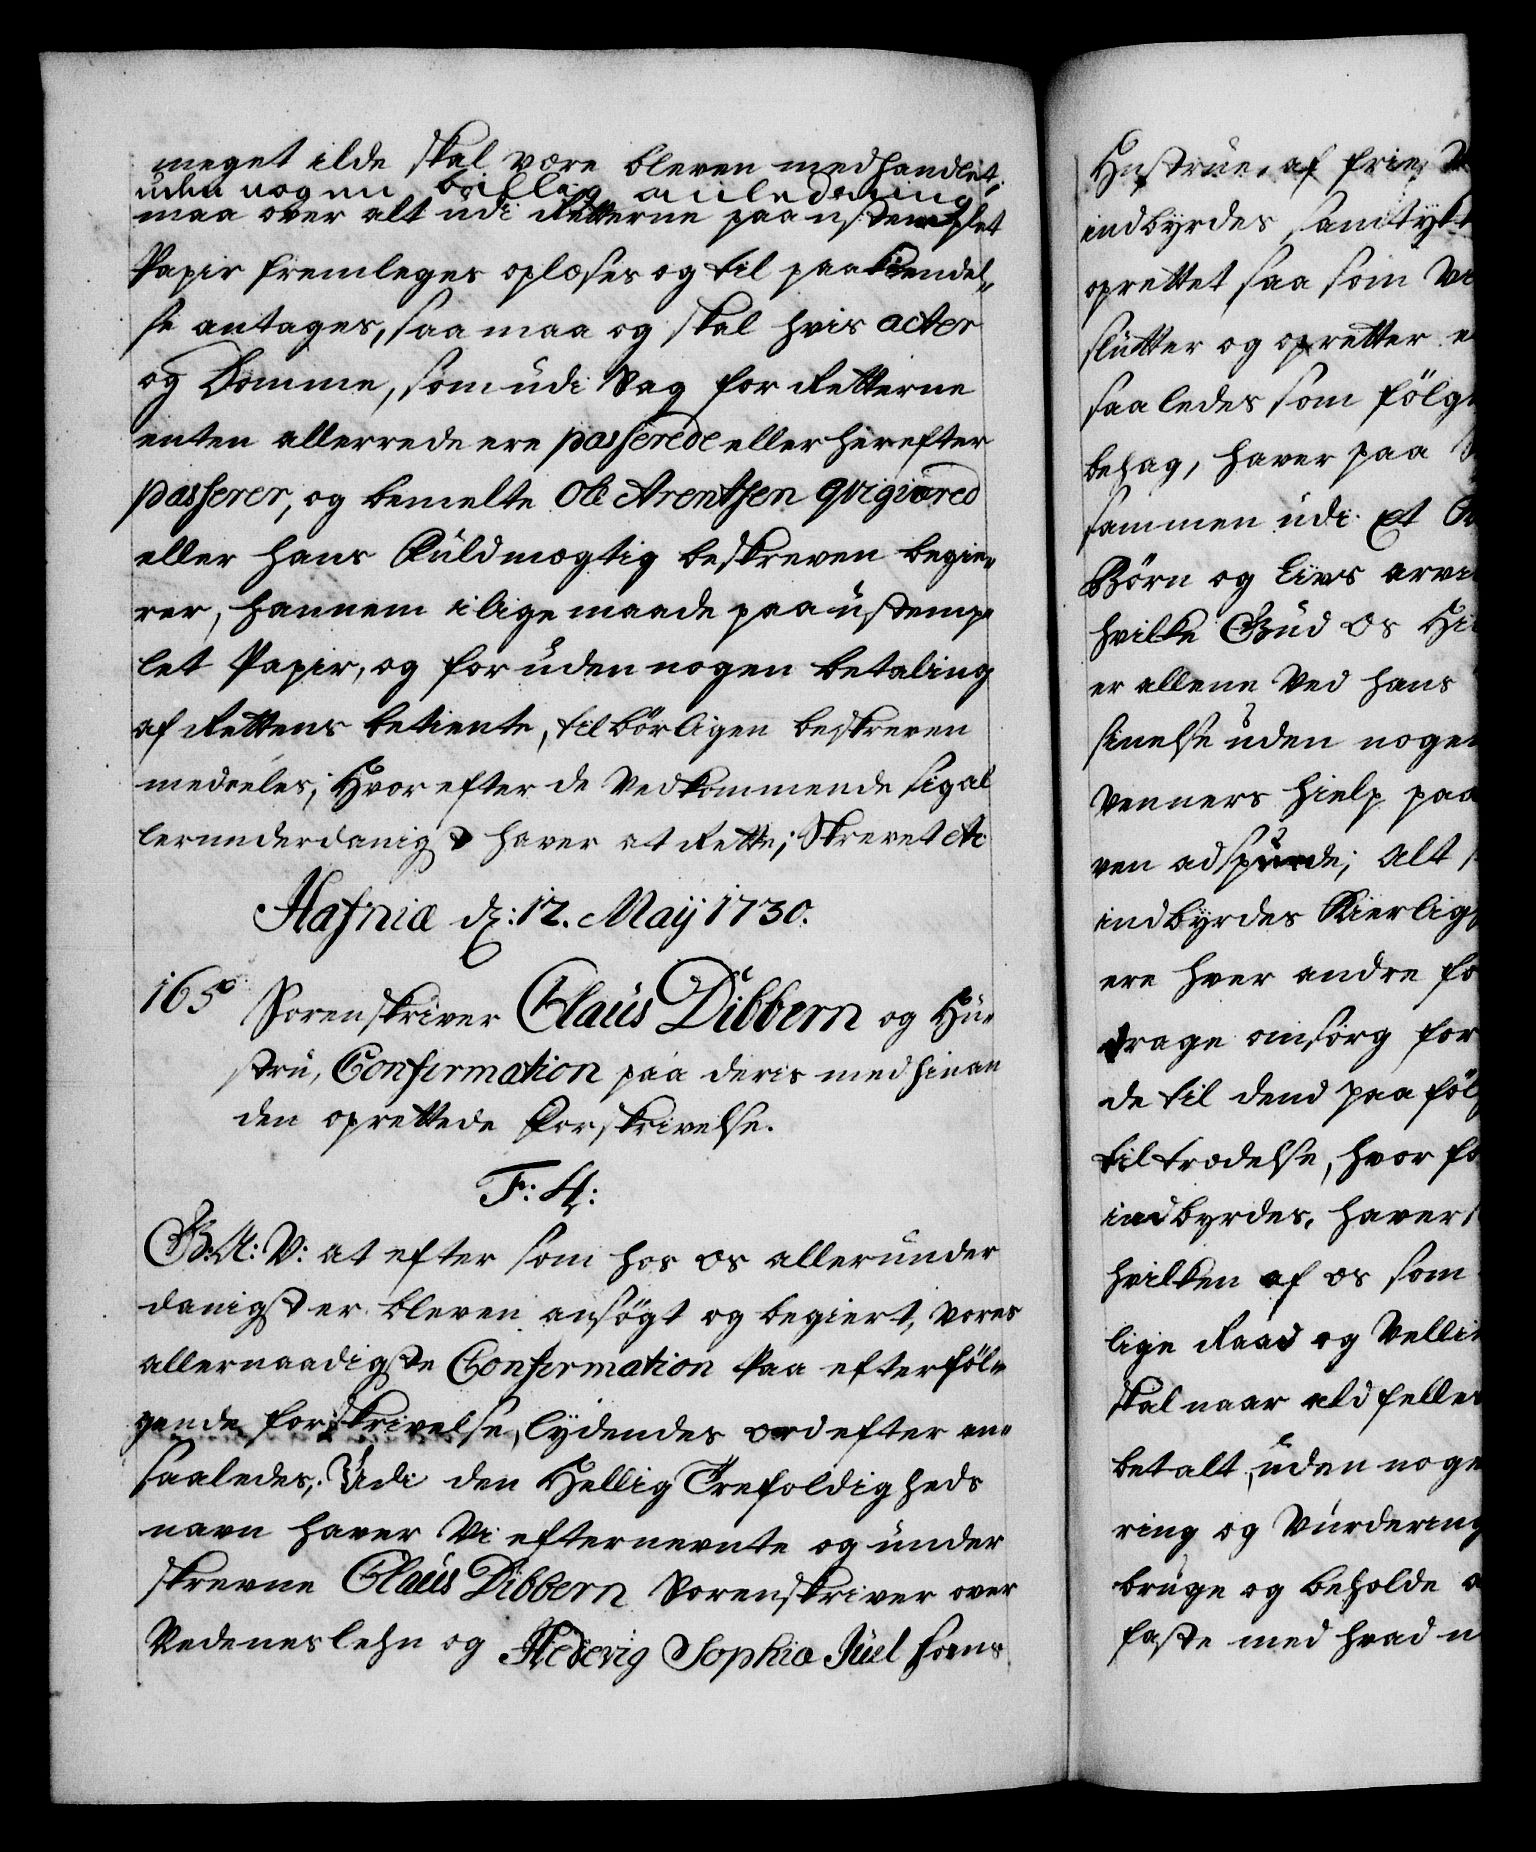 meget ilde skal være bleven medhandlet,
uden nogen billig anledning
maa over alt udi Retterne paa ustemplet
Papir fremleges oplæses og til paakiendel-
se antages, saa maa og skal hvis acter
og Domme, som udi Sag for Retterne
enten allerrede ere passerede eller herefter
passerer, og bemelte Ole Arentsen
eller hans Fuldmægtig beskreven begie-
rer, hannem i lige maade paa ustemp-
let Papir, og foruden nogen betaling
af Rettens betiente, tilbörligen beskreven
meddeles; Hvorefter de Vedkommende sig al
lerunderdanigst haver at Rette; Skrevet etc
Hafniæ d: 12. Maij 1730.
165 Sorenskriver Claus Dibbern og Hu-
stru, Confirmation paa deris med hinan
den oprettede Forskrivelse.
F: 4:
G: A: V: at eftersom hos os allerunder
danigst er bleven ansögt og begiert, vores
allernaadigste Confirmation paa efterföl-
gende forskrivelse, lydendes ord efter an-
saaledes; Udi den Hellig Trefoldigheds
navn haver Vi efternevnte og under
skrevne Claus Dibbern Sorenskriver over
Nedeneslehn og Hedevig Sophia Juel hans
Hustrue, af frie
indbyrdes samtykt
oprettet saa som Vi
slutter og opretter
saaledes som fölg
behag, haver paa
sammen udi Et
Börn og Livs arvi
hvilke Gud os Hi
er allene Ved hans
sinelse uden nogen
Venners hielp paa
ven adspurde; alt
indbyrdes Kierlig
ere hver andre for
drage omsorg for
de til dend paaföl
tiltrædelse, hvor for
indbyrdes, haver
hvilken af os som
lige Raad og Vellie
skal naar ald felles
betalt, uden noge
ring og Vurdering
bruge og beholde
faste med hvad